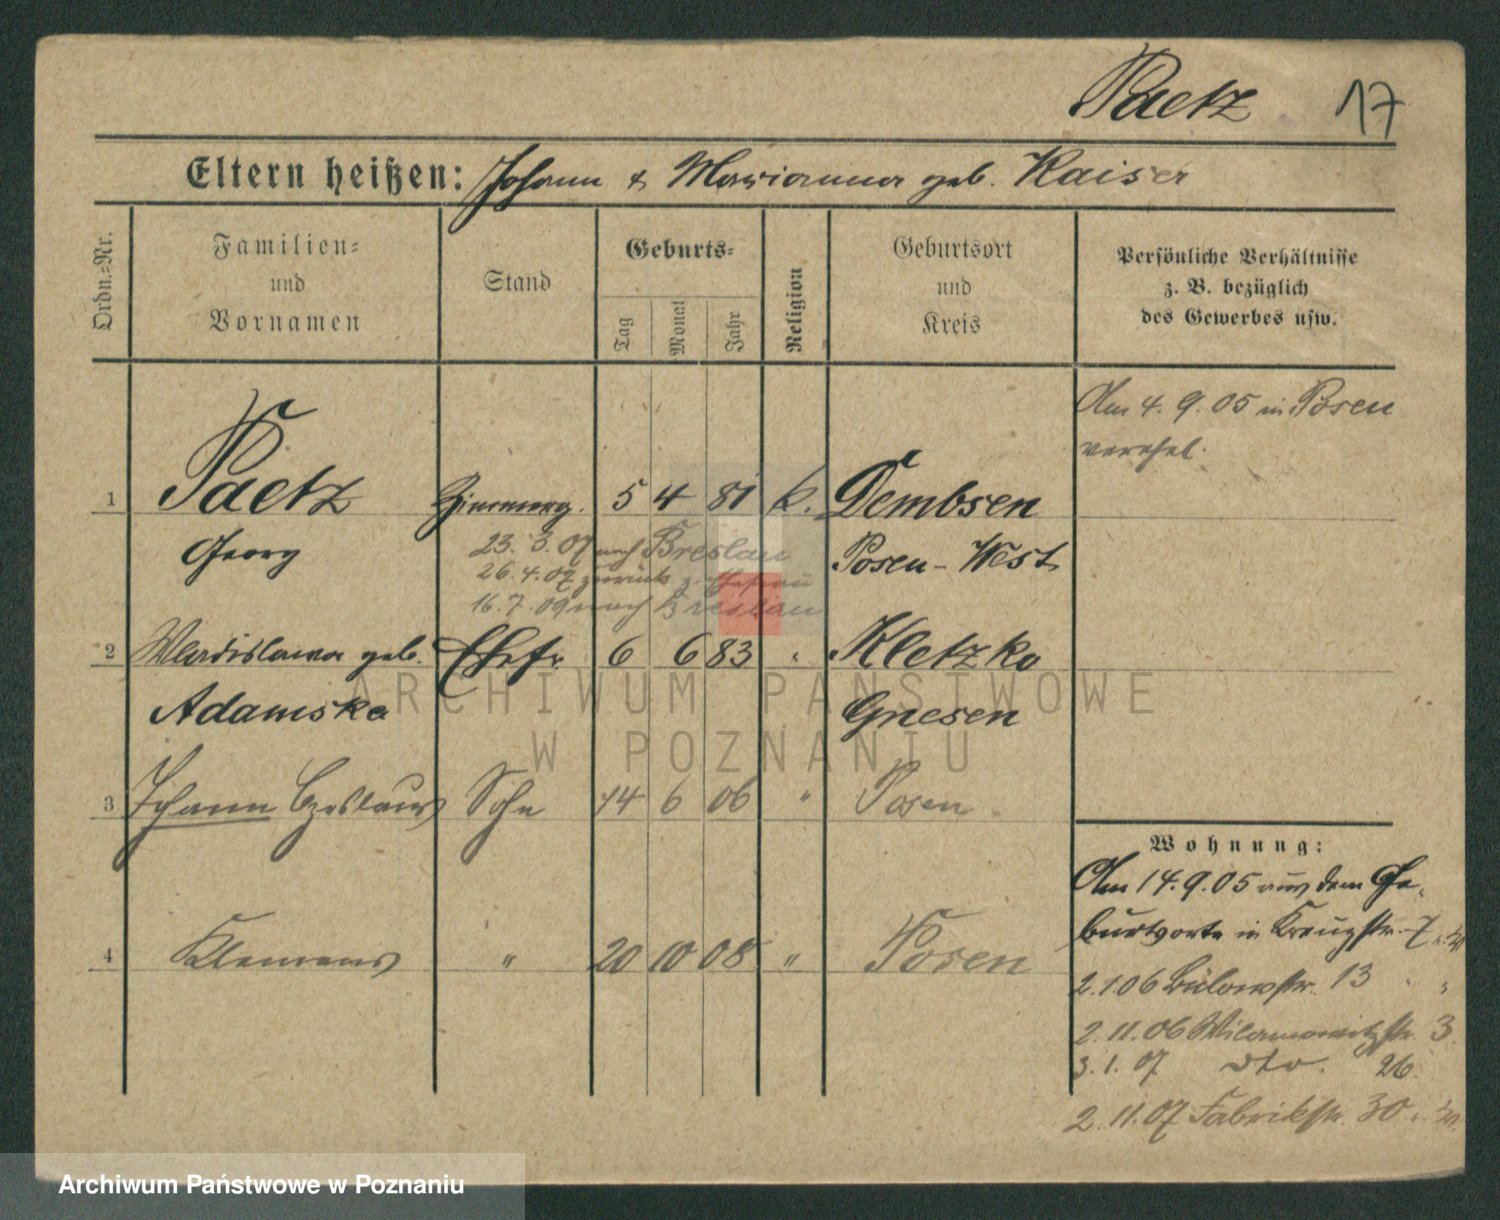 Paetz 17
Eltern heißen: Johann & Marianna geb. Kaiser
Ordn.=Nr.
Familien=
und
Vornamen
Stand
Geburts=
Tag
Monat
Jahr
Religion
Geburtsort
und
Kreis
Persönliche Verhältnisse
z. B. bezüglich
des Gewerbes usw.
Am 4. 9. 05 in Posen
verehel.
1 Paetz Zimmerg. 5 4 81 k. Dembsen
Georg Posen - West
23. 3. 07 nach Breslau
26. 4. 07 zurück z. Ehefrau
16. 7. 09 nach Breslau
2 Wladislawa geb. Ehefr. 6 6 83 " Kletzko
Adamska Gnesen
ARCHIWUM PAŃSTWOWE
W POZNANIU
3 Johann Czeslaus Sohn 14 6 06 " Posen
4 Klemens " 20 10 08 " Posen
Wohnung:
Am 14. 9. 05 aus dem Ge-
burtsorte in Kreuzstr. 7
2. 1. 06 Bülowstr. 13 " "
2. 11. 06 Wilamowitzstr. 3
3. 1. 07 dto. 26
2. 11. 07 Fabrikstr. 30
Archiwum Państwowe w Poznaniu